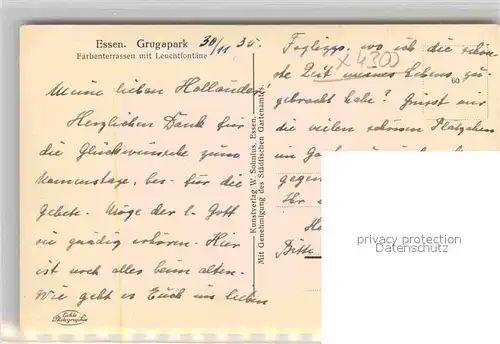 Essen. Grugapark 30/11 35.
Farbenterrassen mit Leuchtfontäne
Meine lieben Holländer!
Herzlichen Dank für
die Glückwünsche zum
Namenstage, bes. für die
Gebete. Möge der l. Gott
sie gnädig erhören. Hier
ist noch alles beim alten.
Wie geht es Euch im lieben
Echte Photographie
Kunstverlag W. Sohnius, Essen.
Mit Genehmigung des Städtischen Gartenamtes.
wo ich die schön-
ste Zeit meines Lebens zu-
x4300
60
gebracht habe? Grüsst mir
die vielen schönen Plätzchen
im
gegen
Ihr
Bitte
privacy protection
Datenschutz